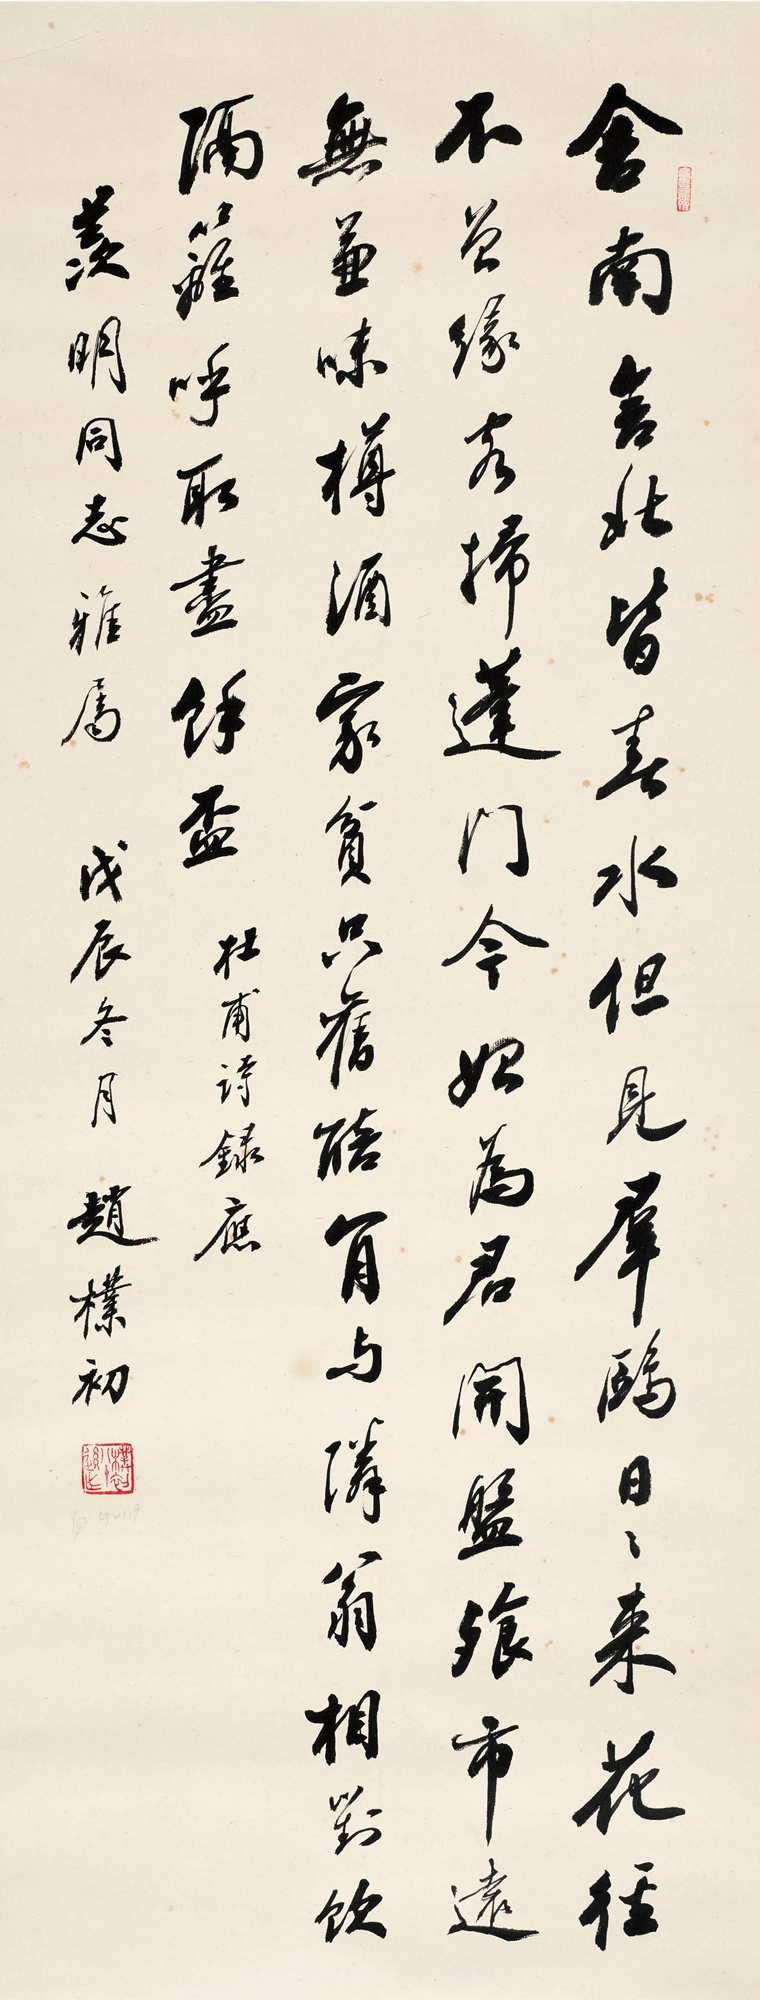 舍南舍北皆春水但見羣鷗日〻來花徑
不曾緣客掃蓬門今始為君開盤飧市遠
無兼味樽酒家貧只舊醅肯与隣翁相對飲
隔籬呼取盡餘盃
杜甫詩錄應
羨明同志雅属
戊辰冬月 趙樸初